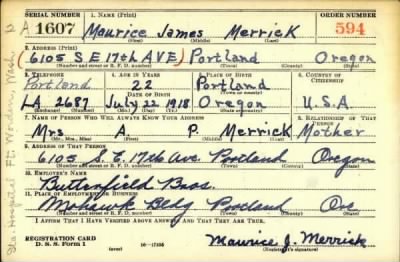 SERIAL NUMBER 1. NAME (Print) ORDER NUMBER
1607 Maurice James Merrick 594
(First) (Middle) (Last)
2. ADDRESS (Print)
(6105 S E 17th AVE) Portland Oregon
(Number, street or R. F. D. number) (Town) (County) (State)
3. TELEPHONE 4. AGE IN YEARS 5. PLACE OF BIRTH 6. COUNTRY OF CITIZENSHIP
Portland 22 Portland
DATE OF BIRTH
LA 2687 July 22 1918 Oregon U.S.A.
7. NAME OF PERSON WHO WILL ALWAYS KNOW YOUR ADDRESS 8. RELATIONSHIP OF THAT PERSON
Mrs A. P. Merrick Mother
(Mr., Mrs., Miss) (First) (Middle) (Last)
9. ADDRESS OF THAT PERSON
6105 S.E. 17th Ave. Portland Oregon
(Number, street or R. F. D. number) (Town) (County) (State)
10. EMPLOYER'S NAME
Butterfield Bros.
11. PLACE OF EMPLOYMENT OR BUSINESS
Mohawk Bldg Portland Ore
(Number, street or R. F. D. number) (Town) (County) (State)
I AFFIRM THAT I HAVE VERIFIED ABOVE ANSWERS AND THAT THEY ARE TRUE.
REGISTRATION CARD
D. S. S. Form 1 (over) Maurice J. Merrick
(Registrant's signature)
Sta. Hospital Ft. Wash